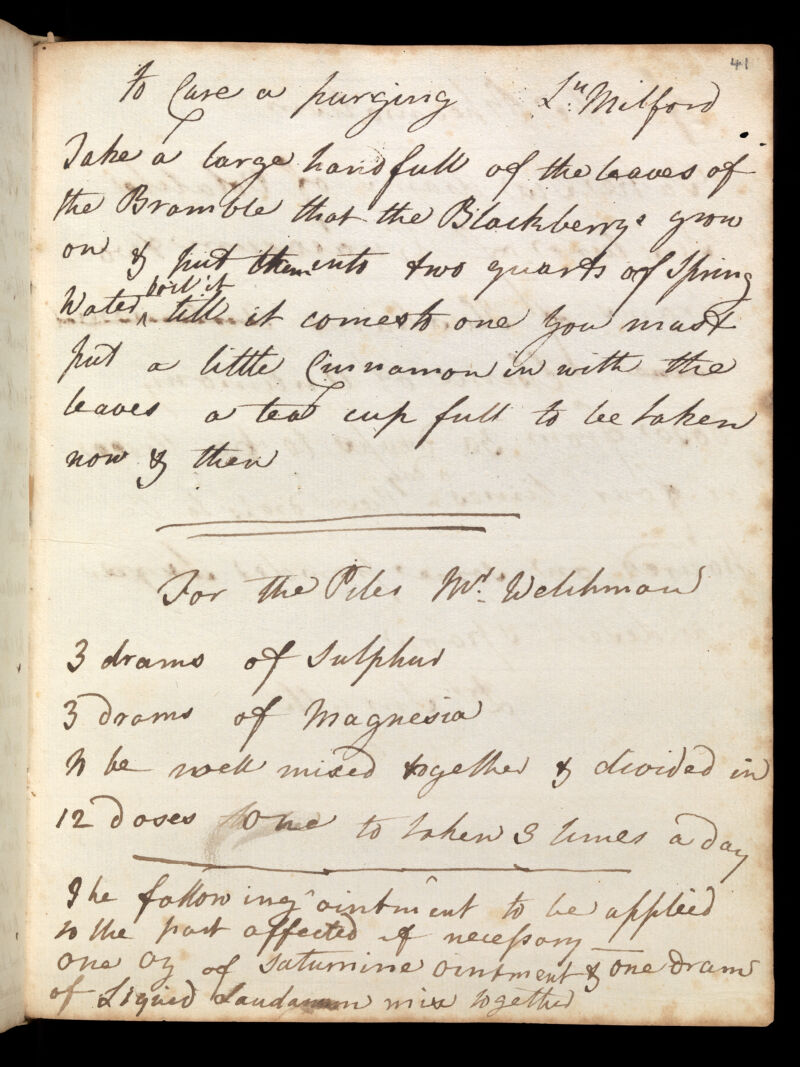 41
To Cure a purging Ln Milford
Take a large handfull of the leaves of
the Bramble that the Blackberrys grow
on & put them into two quarts of Spring
Water boil it till it comes to one you must
put a little Cinnamon in with the
leaves a tea cup full to be taken
now & then
For the Piles Mr Welchman
3 drams of Sulphur
3 drams of Magnesia
to be well mixed together & divided in
12 doses One to taken 3 times a day
The following ointment to be applied
to the part affected if necessary
One Oz of Saturnine ointment & one dram
of Liquid Laudanum mix together